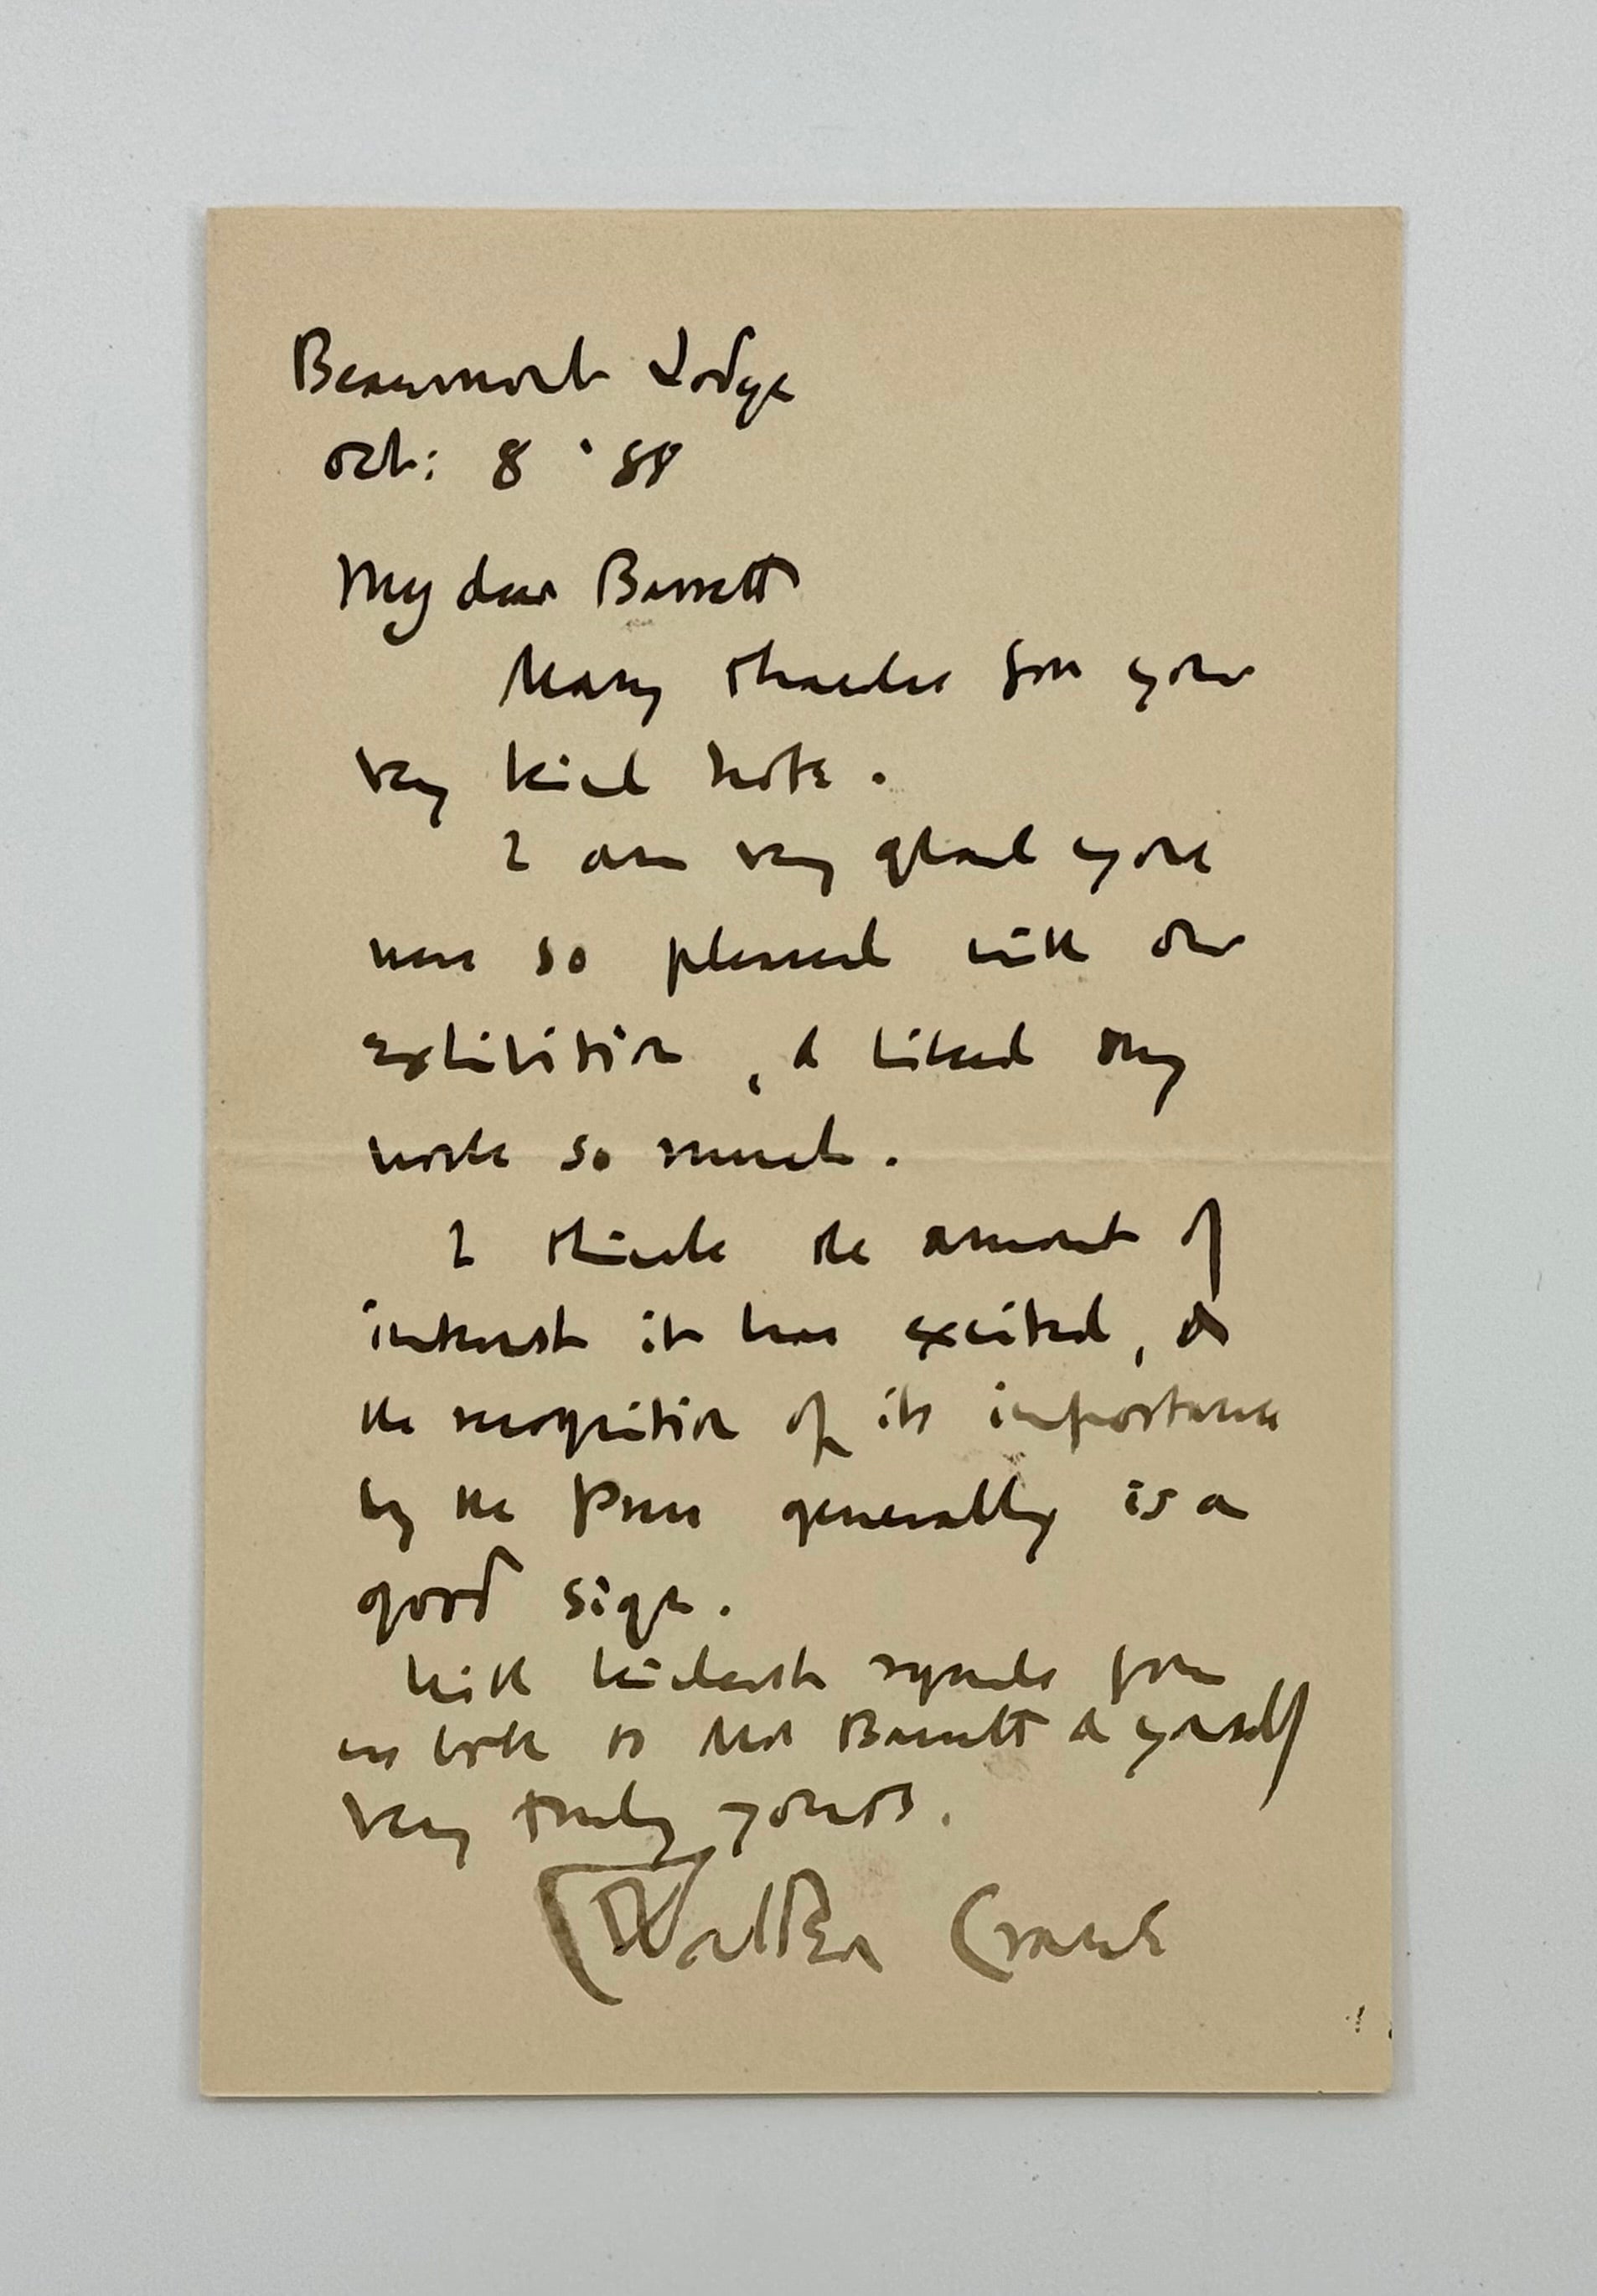 Beaumont Lodge
Oct: 8 '88
My dear Barrett
Many thanks for your
very kind note.
I am very glad you
were so pleased with our
exhibition, & liked my
work so much.
I think the amount of
interest it has excited, &
the recognition of its importance
by the Press generally is a
good sign.
With kindest regards from
us both to Mrs Barrett & yrself
Very truly yours.
Walter Crane